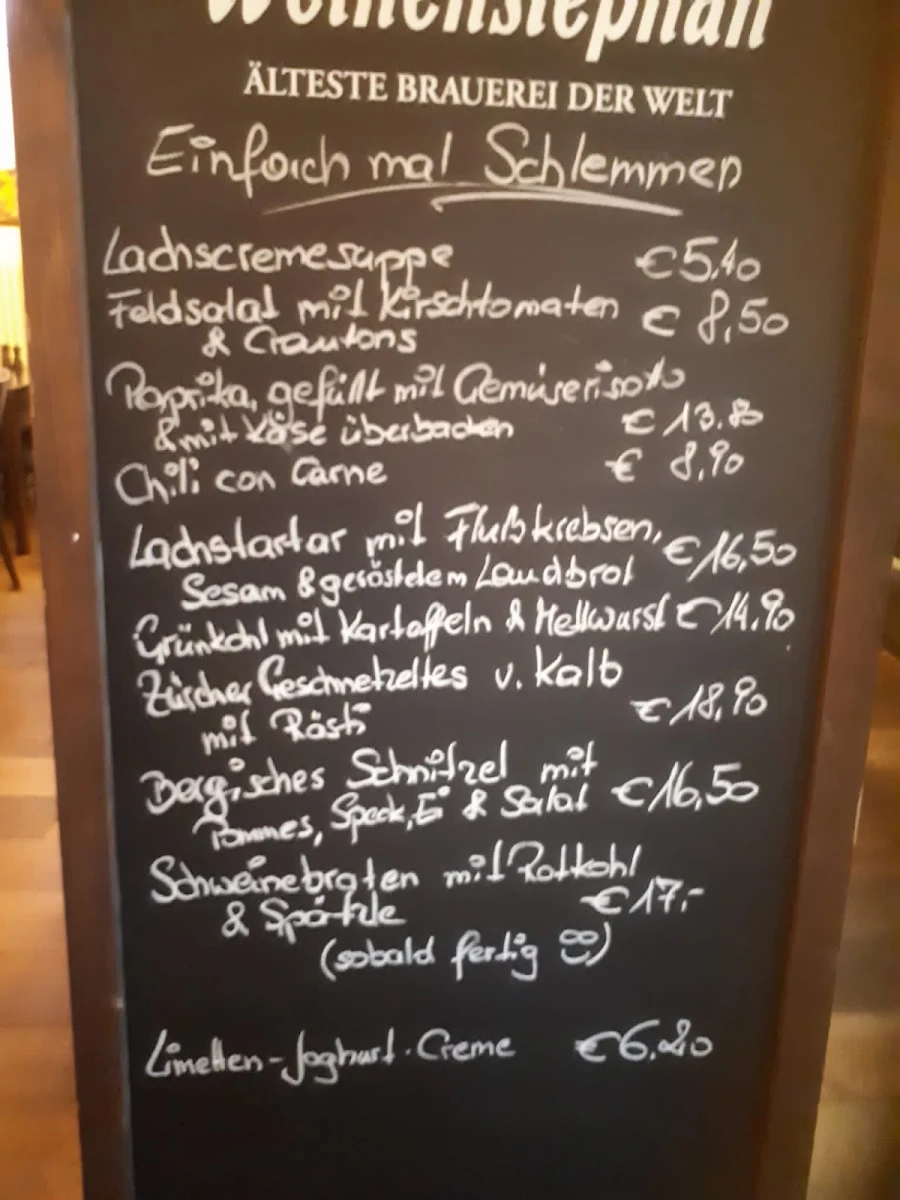 Weihenstephan
ÄLTESTE BRAUEREI DER WELT
Einfach mal Schlemmen
Lachscremesuppe €5,40
Feldsalat mit Kirschtomaten € 8,50
& Croutons
Paprika, gefüllt mit Gemüserisoto
& mit Käse überbacken € 13.80
Chili con Carne € 8,90
Lachstartar mit Flußkrebsen, €16,50
Sesam & geröstetem Landbrot
Grünkohl mit Kartoffeln & Mettwurst €14,90
Zürcher Geschnetzeltes v. Kalb
mit Rösti €18,90
Bergisches Schnitzel mit
Pommes, Speck, Ei & Salat €16,50
Schweinebraten mit Rotkohl
& Spätzle €17.-
(sobald fertig ☺)
Limetten-Joghurt-Creme €6,20